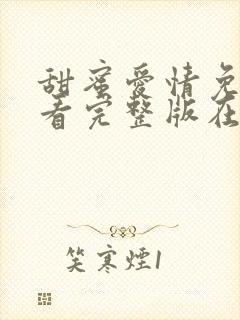 甜蜜爱情免
看完整版在
笑寒煙1